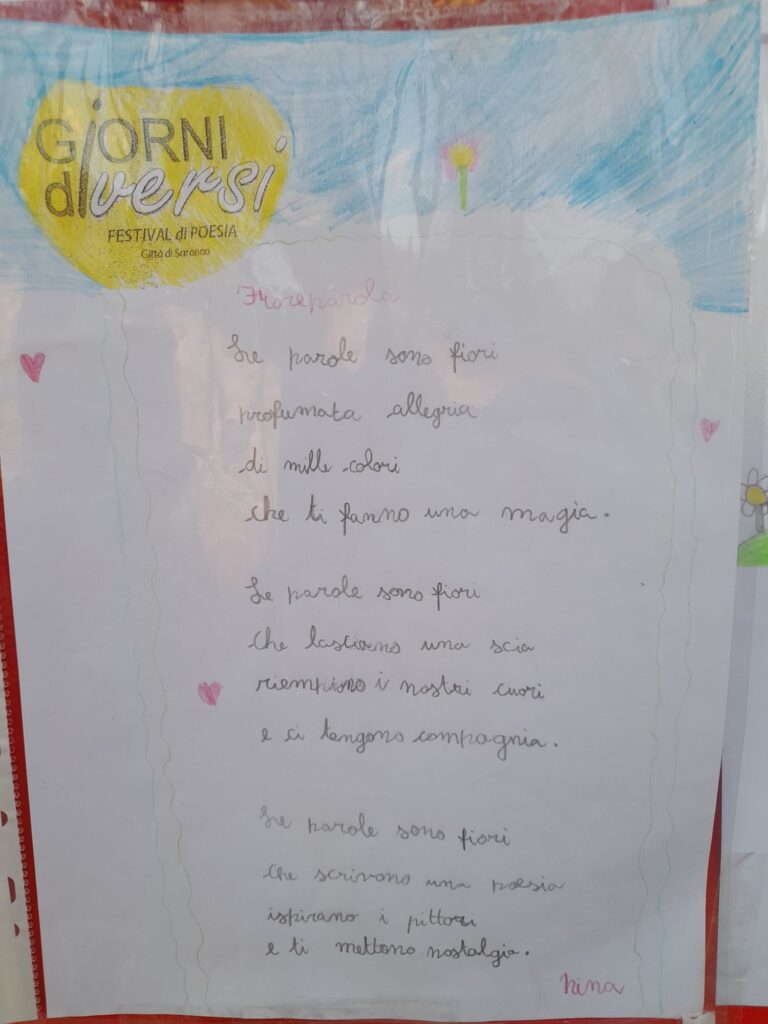 GiORNI
diversi
FESTIVAL di POESIA
Città di Saronno
Fioreparola
Le parole sono fiori
profumata allegria
di mille colori
che ti fanno una magia.
Le parole sono fiori
che lasciano una scia
riempiono i nostri cuori
e ci tengono compagnia.
Le parole sono fiori
che scrivono una poesia
ispirano i pittori
e ti mettono nostalgia.
Nina